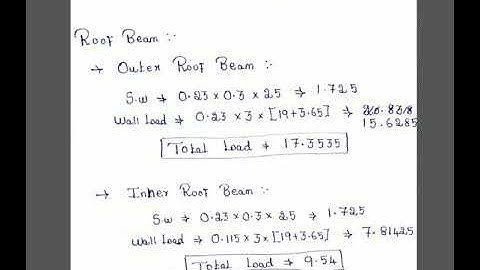 Roof Beam :-
→ Outer Roof Beam :-
S.w ⇒ 0.23 x 0.3 x 25 ⇒ 1.725
Wall Load ⇒ 0.23 x 3 x [19+3.65] ⇒
15.6285
Total Load ⇒ 17.3535
→ Inner Roof Beam :-
S.w ⇒ 0.23 x 0.3 x 25 ⇒ 1.725
Wall Load ⇒ 0.115 x 3 x [19+3.65] ⇒ 7.81425
Total Load ⇒ 9.54